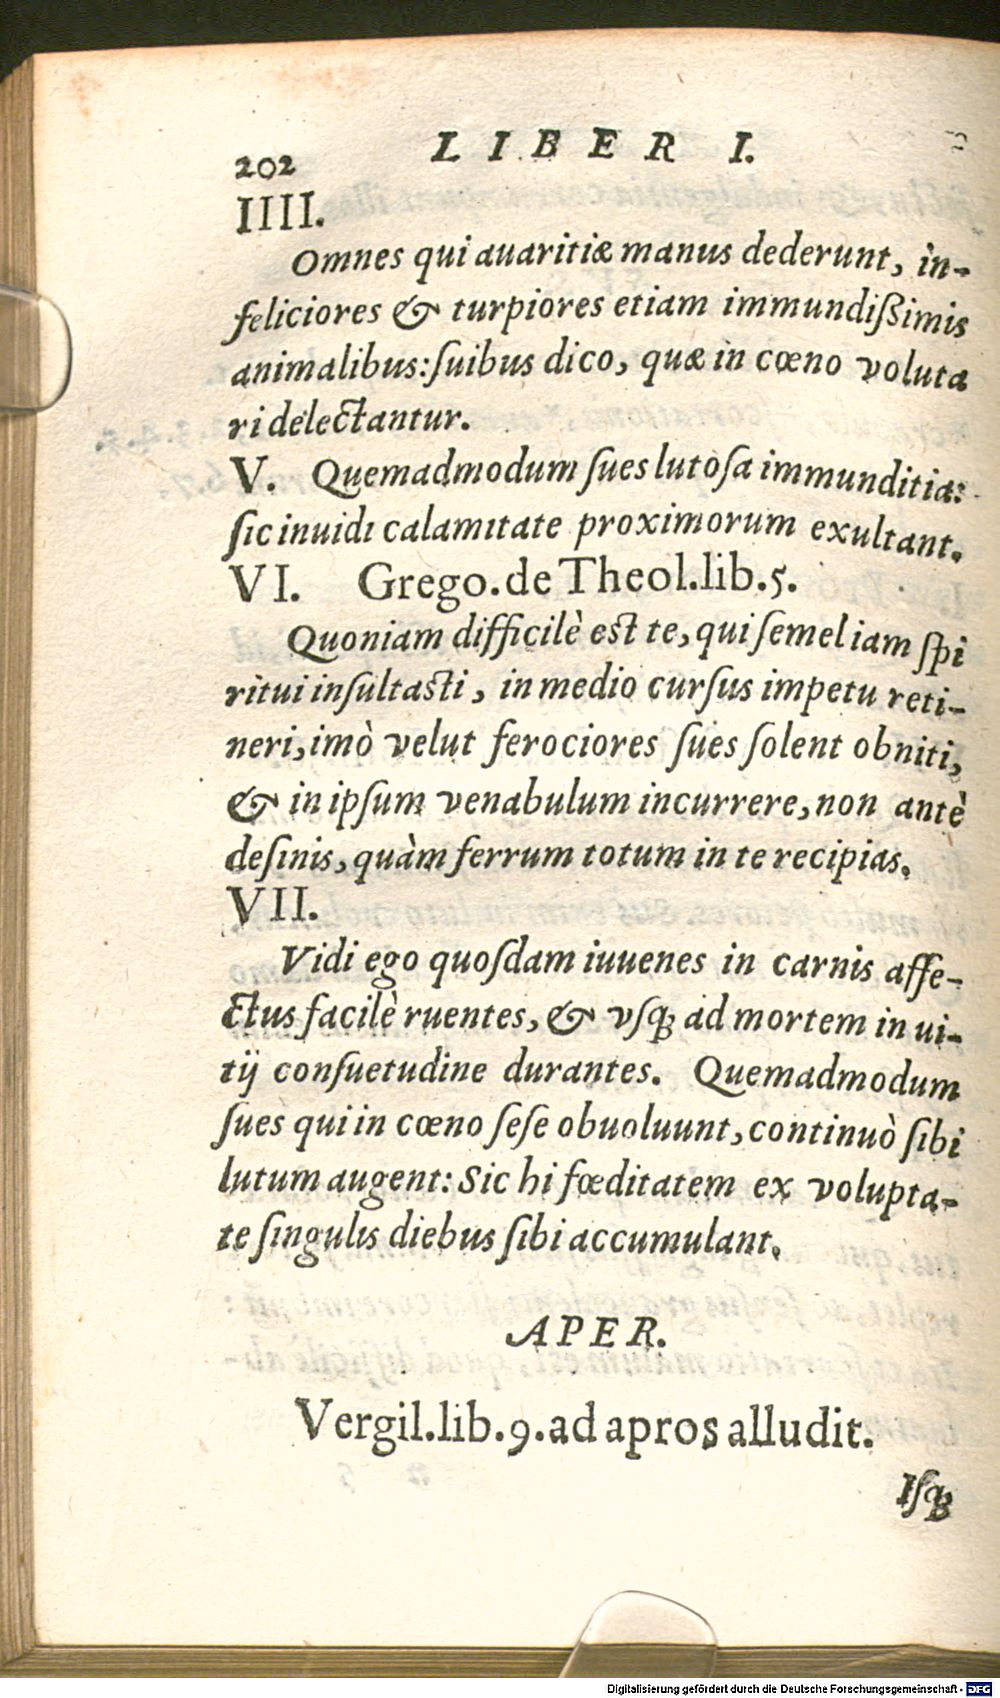 202 LIBER I.
IIII.
Omnes qui auaritiæ manus dederunt, in-
feliciores & turpiores etiam immundißimis
animalibus: ſuibus dico, quæ in cœno voluta
ri delectantur.
V. Quemadmodum ſues lutoſa immunditia:
ſic inuidi calamitate proximorum exultant.
VI. Grego. de Theol. lib. 5.
Quoniam difficilè est te, qui ſemel iam ſpi
ritui inſultasti, in medio curſus impetu reti-
neri, imò velut ferociores ſues ſolent obniti,
& in ipſum venabulum incurrere, non antè
deſinis, quàm ferrum totum in te recipias.
VII.
Vidi ego quoſdam iuuenes in carnis affe-
ctus facilè ruentes, & vſq; ad mortem in ui-
tij conſuetudine durantes. Quemadmodum
ſues qui in cœno ſeſe obuoluunt, continuò ſibi
lutum augent: Sic hi fœditatem ex volupta-
te ſingulis diebus ſibi accumulant.
APER.
Vergil. lib. 9. ad apros alludit.
Iſq;
Digitalisierung gefördert durch die Deutsche Forschungsgemeinschaft - DFG